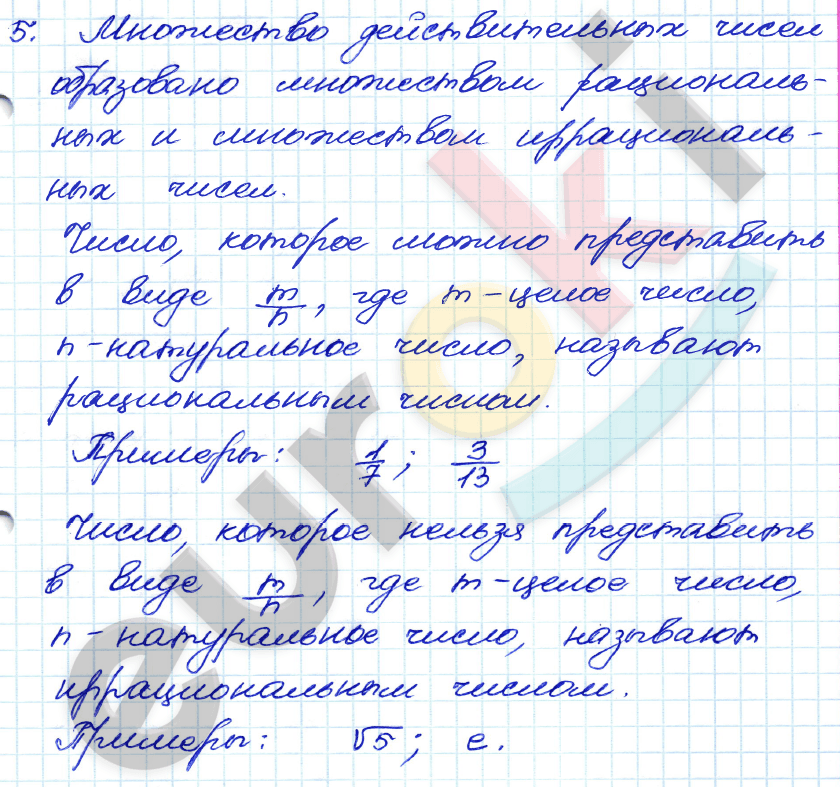 5. Множество действительных чисел
образовано множеством рациональ-
ных и множеством иррациональ-
ных чисел.
Число, которое можно представить
в виде m/n, где m - целое число,
n - натуральное число, называют
рациональным числом.
Примеры: 1/7; 3/13
Число, которое нельзя представить
в виде m/n, где m - целое число,
n - натуральное число, называют
иррациональным числом.
Примеры: √5; e.
euroki